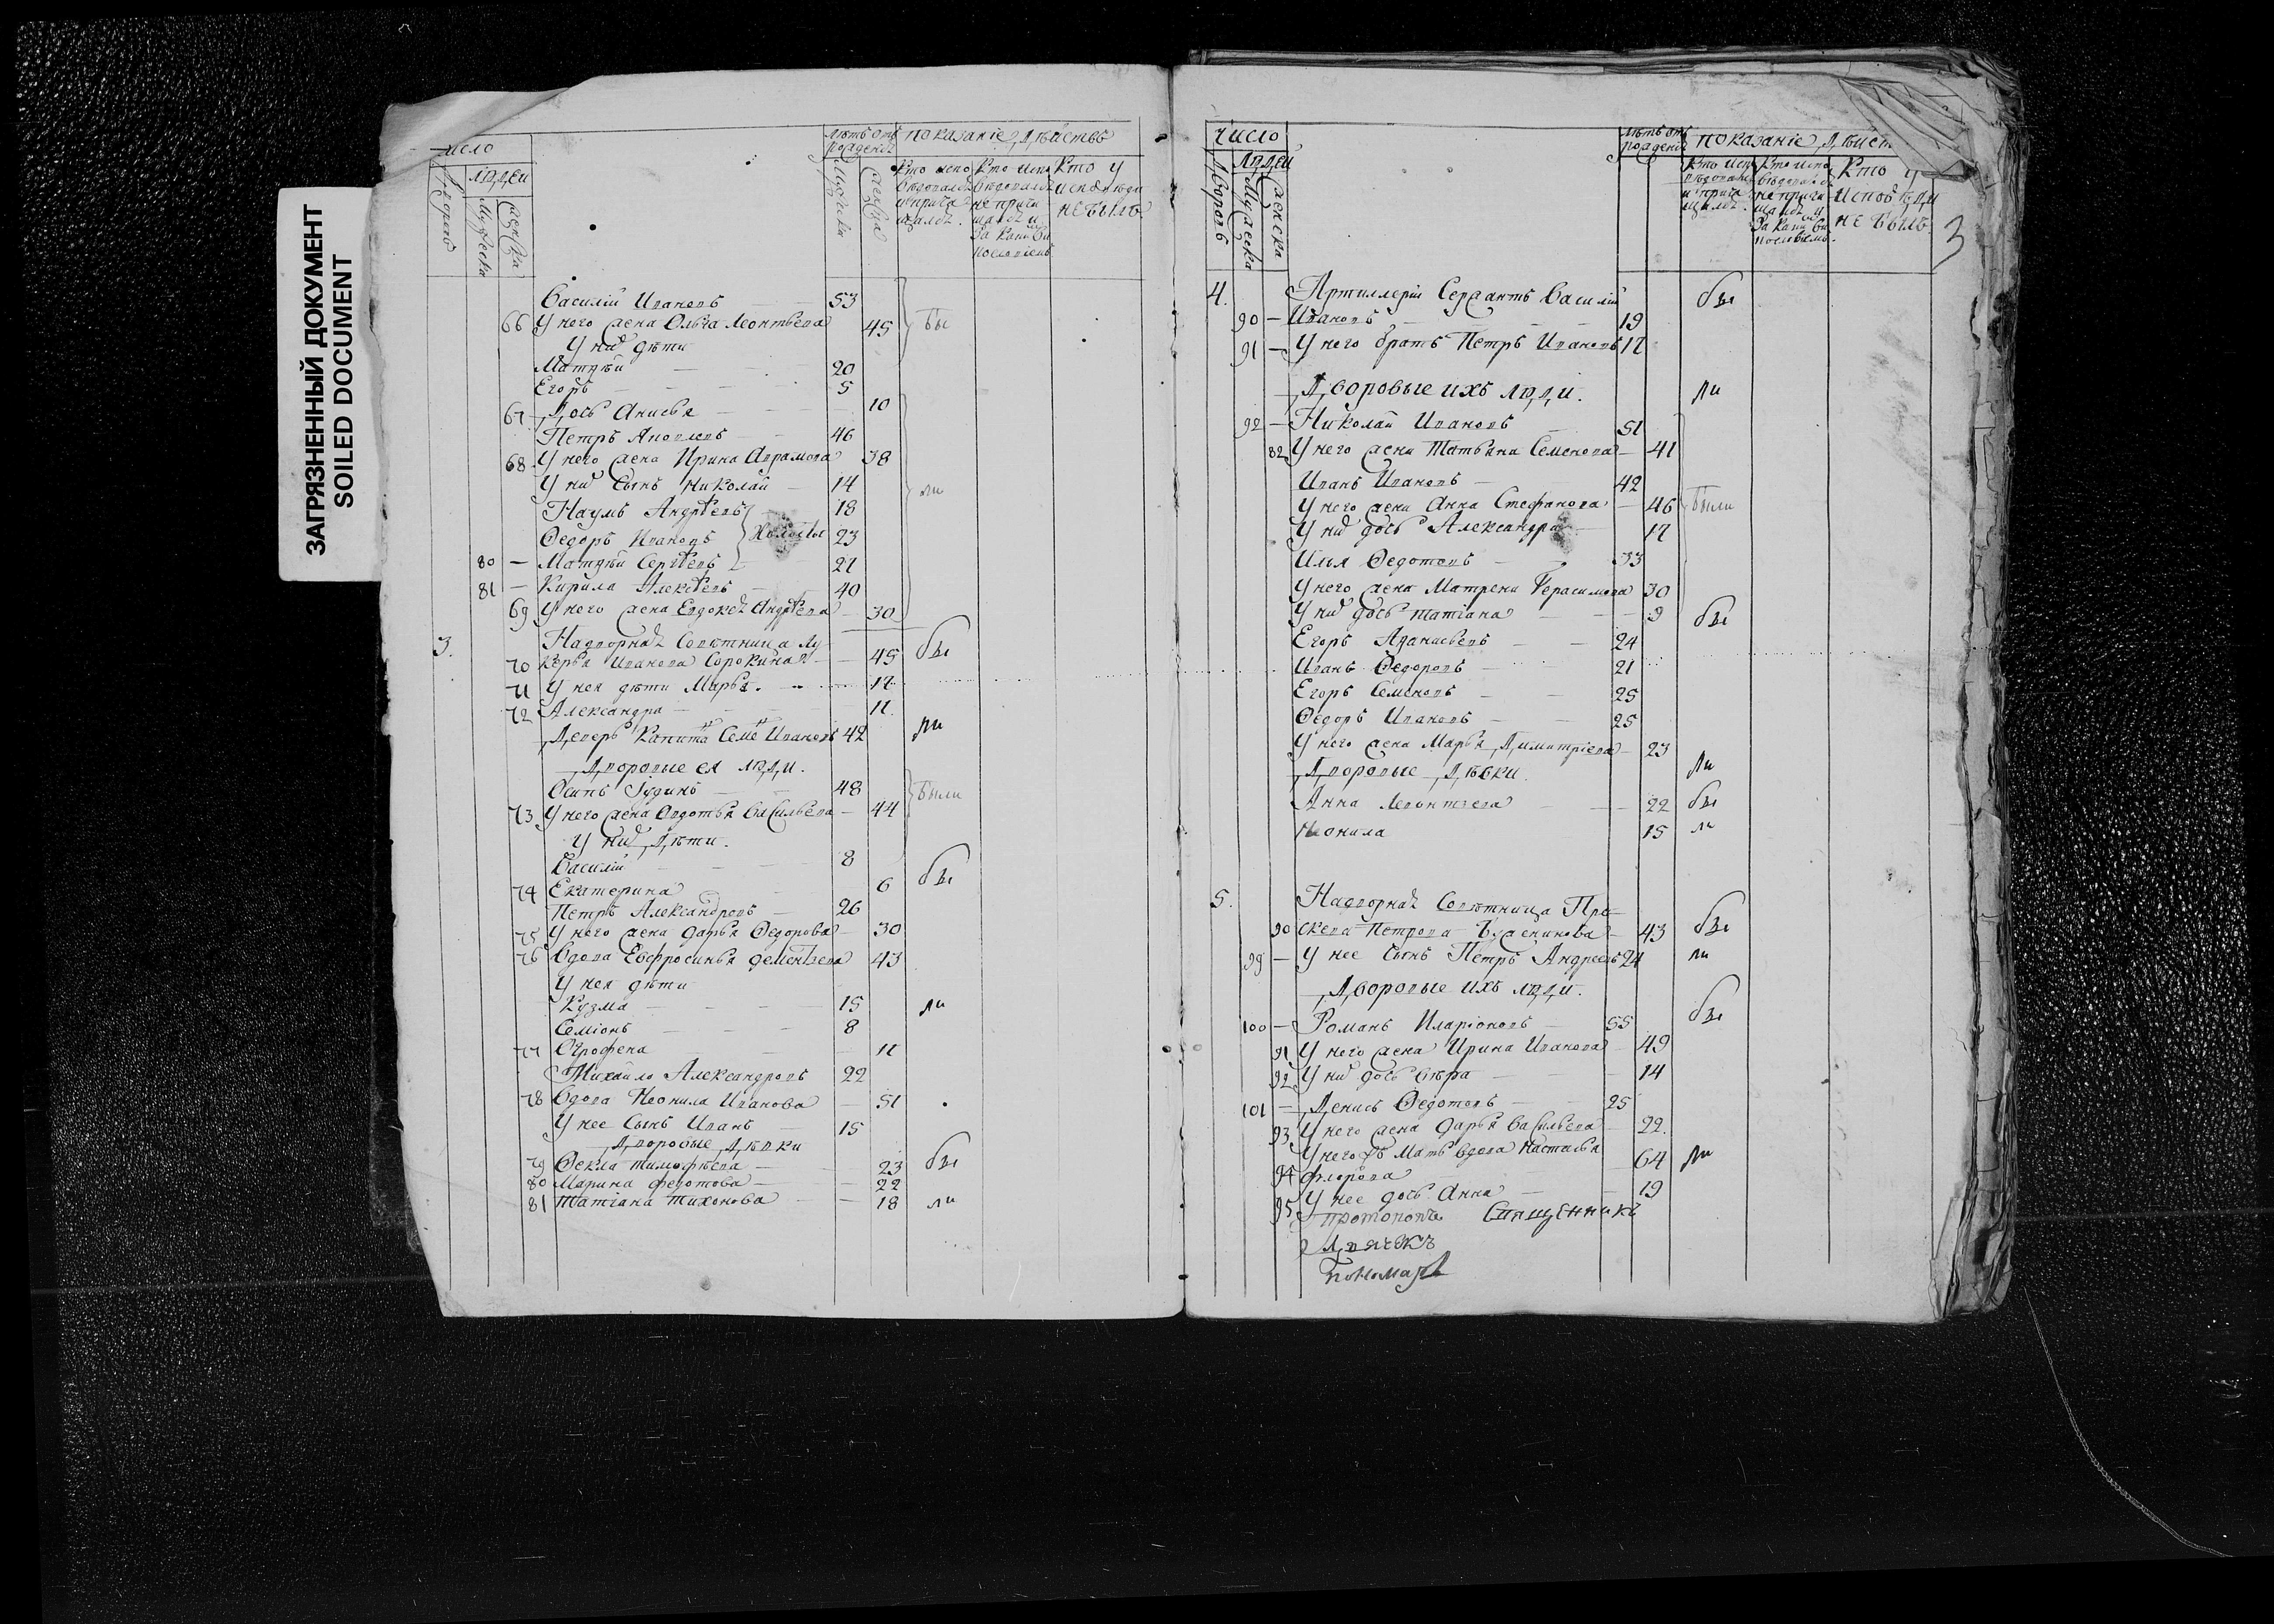 ЗАГРЯЗНЕННЫЙ ДОКУМЕНТ
SOILED DOCUMENT
число
людей
лѣтъ отъ рожденія
показаніе действъ
мужеска
женска
кто испо вѣдовался и прича щался
кто испо вѣдовался не прича щался и за каким вино словіемъ
кто у исповѣди не былъ
Василій Ивановъ 53
66 У него жена Ольга Леонтьева 45 бы
У них дѣти
Матѳѣй 20
Егоръ 5
67 Дочь Анисья 10
Петръ Яковлевъ 46
68 У него жена Ирина Авраамова 38
У них сынъ Николай 14 ли
Наумъ Андрѣевъ 18
Ѳедоръ Ивановъ холосты 23
80 Матѳѣй Сергѣевъ 27
81 Кирила Алексѣевъ 40
69 У него жена Евдокея Андрѣева 30
3. Надворная Совѣтница Лу
70 керья Иванова Сорокиная 45 бы
71 У нея дѣти Марья 17
72 Александра 11
Деверь Капита Семе Ивановъ 42 ли
Дворовые ея люди.
Осипъ Іудинъ 48
73 У него жена Овдотья Васильева 44 были
У них дѣти.
Василій 8
74 Екатерина 6 бы
Петръ Александровъ 26
75 У него жена Дарья Ѳедорова 30
76 Вдова Евфросинья Дементьева 43
У нея дѣти
Кузма 15 ли
Семіонъ 8
77 Огрофена 11
Михайло Александровъ 22
78 Вдова Неонила Иванова 51
У нее сынъ Иванъ 15
Дворовые дѣвки
79 Ѳекла Тимофѣева 23 бы
80 Марина Федотова 22
81 Татіана Тихонова 18 ли
число
людей
дворовъ
мужеска
женска
лѣтъ отъ рожденія
показаніе дѣйст
кто у исповѣди не былъ
3
4. Артиллеріи Сержантъ Василій бы
90 Ивановъ 19
91 У него братъ Петръ Ивановъ 17
Дворовые ихъ люди. ли
92 Николай Ивановъ 51
82 У него жена Татьяна Семенова 41
Иванъ Ивановъ 42
У него жена Анна Стефанова 46 были
У них дочь Александра 17
Илья Ѳедотовъ 33
У него жена Матрена Герасимова 30
У них дочь Татіана 9 бы
Егоръ Афанасьевъ 24
Иванъ Ѳедоровъ 21
Егоръ Семеновъ 25
Ѳедоръ Ивановъ 25
У него жена Марья Димитріева 23
Дворовые дѣвки. ли
Анна Леонтьева 22 бы
Неонила 15 ли
5. Надворная Совѣтница Пра
90 скева Петрова 43 бы
99 У нее сынъ Петръ Андреевъ 24 ли
Дворовые ихъ люди.
100 Романъ Иларіоновъ 55 бы
91 У него жена Ирина Иванова 49
92 У них дочь Вѣра 14
101 Денисъ Ѳедотовъ 25
93 У него жена Дарья Васильева 22
У него жъ мать вдова Настасья 64 ли
94 Флорова
95 У нее дочь Анна 19
протопопъ Священникъ
Дьячекъ
пономарь